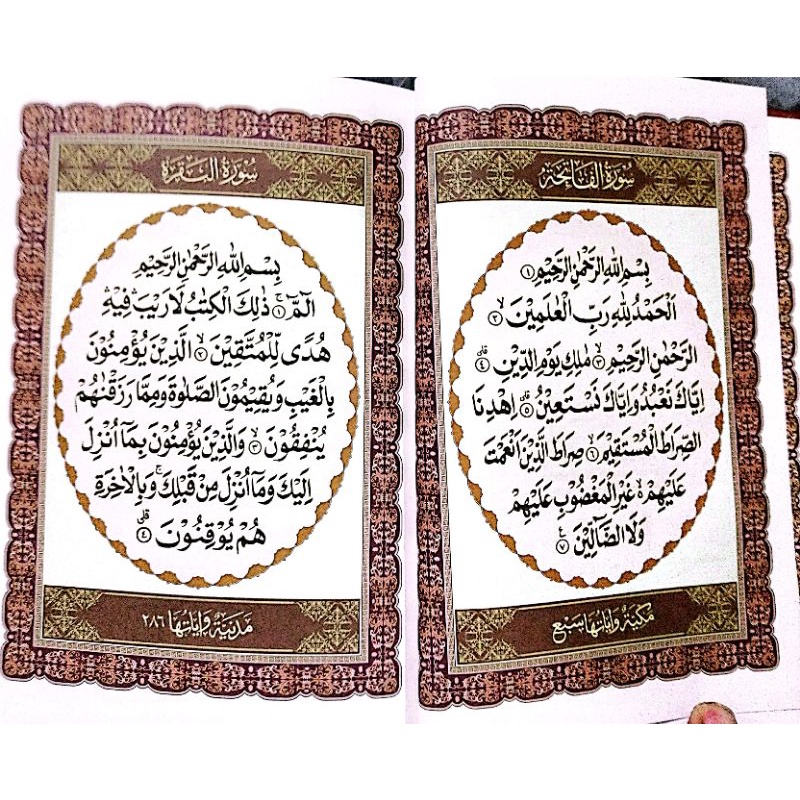 سُورَةُ الْفَاتِحَةِ
بِسْمِ اللّٰهِ الرَّحْمٰنِ الرَّحِيْمِ ١
اَلْحَمْدُ لِلّٰهِ رَبِّ الْعٰلَمِيْنَۙ ٢
الرَّحْمٰنِ الرَّحِيْمِۙ ٣ مٰلِكِ يَوْمِ الدِّيْنِۗ ٤
اِيَّاكَ نَعْبُدُ وَاِيَّاكَ نَسْتَعِيْنُۗ ٥ اِهْدِنَا
الصِّرَاطَ الْمُسْتَقِيْمَۙ ٦ صِرَاطَ الَّذِيْنَ اَنْعَمْتَ
عَلَيْهِمْ ەۙ غَيْرِ الْمَغْضُوْبِ عَلَيْهِمْ
وَلَا الضَّاۤلِّيْنَ ࣖ ٧
مَكِّيَّةٌ وَاٰيَاتُهَا سَبْعٌ
سُورَةُ الْبَقَرَةِ
بِسْمِ اللّٰهِ الرَّحْمٰنِ الرَّحِيْمِ
الۤمّۤ ۚ ١ ذٰلِكَ الْكِتٰبُ لَا رَيْبَ ۛ فِيْهِ ۛ
هُدًى لِّلْمُتَّقِيْنَۙ ٢ الَّذِيْنَ يُؤْمِنُوْنَ
بِالْغَيْبِ وَيُقِيْمُوْنَ الصَّلٰوةَ وَمِمَّا رَزَقْنٰهُمْ
يُنْفِقُوْنَۙ ٣ وَالَّذِيْنَ يُؤْمِنُوْنَ بِمَآ اُنْزِلَ
اِلَيْكَ وَمَآ اُنْزِلَ مِنْ قَبْلِكَ ۚ وَبِالْاٰخِرَةِ
هُمْ يُوْقِنُوْنَۗ ٤
مَدَنِيَّةٌ وَاٰيَاتُهَا ٢٨٦